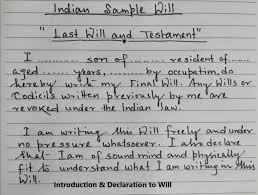 Indian Sample Will
"Last Will and Testament"
I ............ son of ........ resident of ........
aged ...... years, ......... by occupation, do
hereby write my Final Will. Any Wills or
Codicils written previously by me are
revoked under the Indian law.
I am writing this Will freely and under
no pressure whatsoever. I also declare
that I am of sound mind and physically
fit to understand what I am writing in this
Will.
Introduction & Declaration to Will